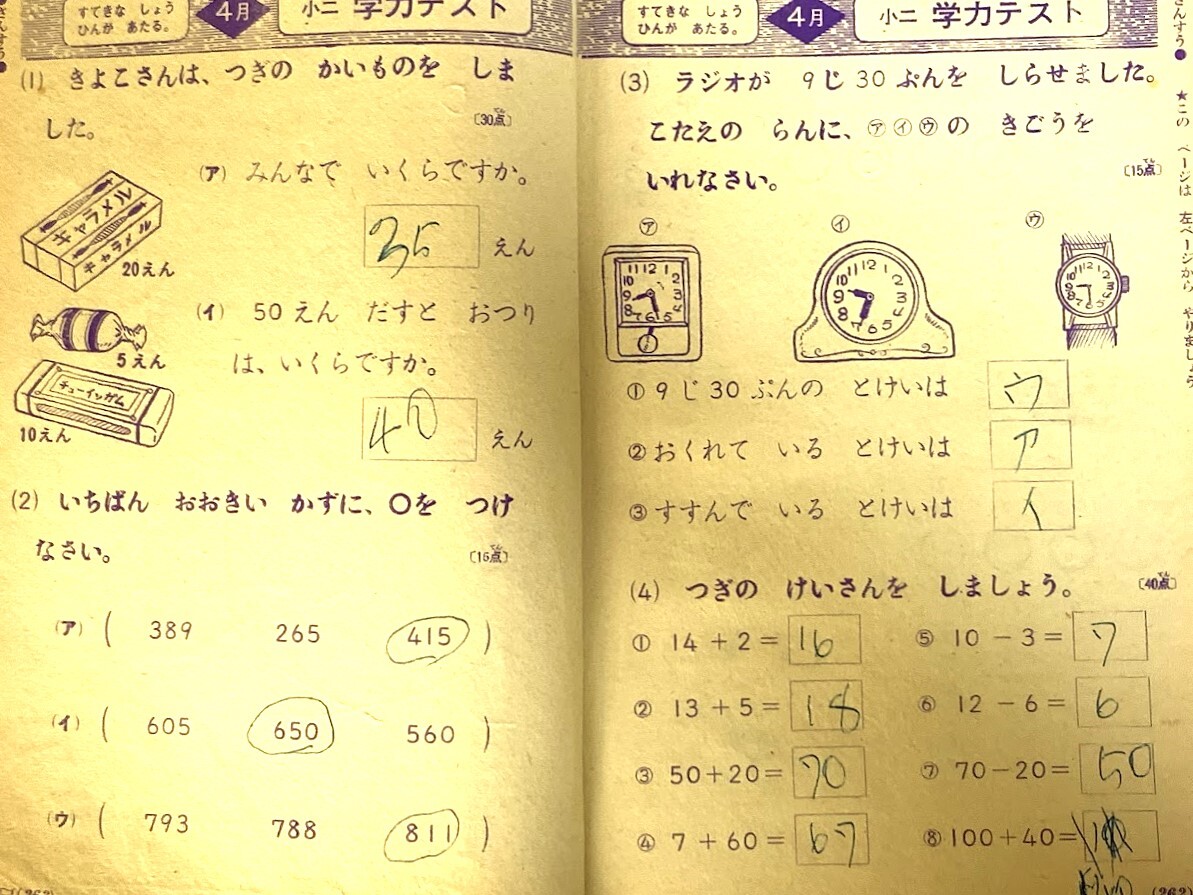 すてきな しょう
ひんが あたる。
4月
小二 学力テスト
(1) きよこさんは、つぎの かいものを しま
した。
〔30点〕
てん
キャラメル
キャラメル
20えん
5えん
チューインガム
10えん
(ア) みんなで いくらですか。
35 えん
(イ) 50えん だすと おつり
は、いくらですか。
40 えん
(2) いちばん おおきい かずに、○を つけ
なさい。
てん
〔15点〕
(ア) ( 389 265 415 )
(イ) ( 605 650 560 )
(ウ) ( 793 788 811 )
すてきな しょう
ひんが あたる。
4月
小二 学力テスト
(3) ラジオが 9じ30ぷんを しらせました。
こたえの らんに、㋐㋑㋒の きごうを
いれなさい。
てん
〔15点〕
㋐
㋑
㋒
①9じ30ぷんの とけいは ウ
②おくれて いる とけいは ア
③すすんで いる とけいは イ
(4) つぎの けいさんを しましょう。
てん
〔40点〕
① 14+2= 16
② 13+5= 18
③ 50+20= 70
④ 7+60= 67
⑤ 10-3= 7
⑥ 12-6= 6
⑦ 70-20= 50
⑧ 100+40=
★この ページは 左ページから やりましょう